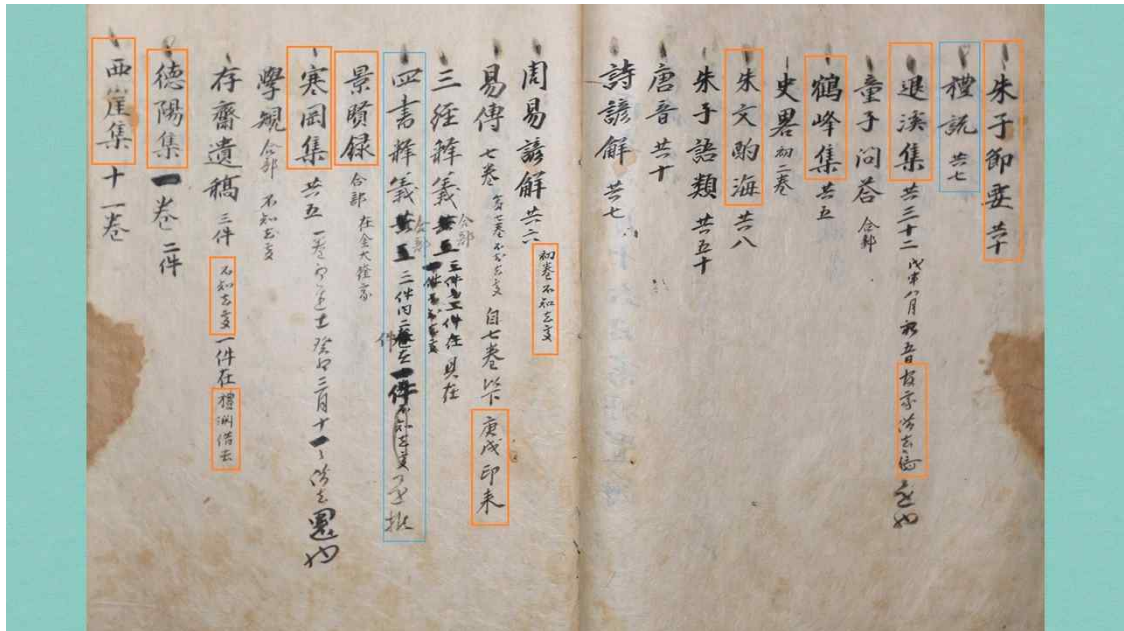 朱子節要 共十
禮說 共七
退溪集 共三十二 戊申八月初五日
童子問答 合部
鶴峰集 共五
史畧 初二卷
朱文酌海 共八
朱子語類 共五十
唐音 共十
詩諺解 共七
周易諺解 共六 初卷不知去處
易傳 七卷 自七卷以下 庚戌印来
三經釋義 合部 三件 二件在
四書釋義 合部 二件內 一件不知去處
景賢録 合部 在金大
寒岡集 共五 一卷 癸卯三月十
學規 合部 不知去處
存齋遺稿 三件 不知去處 一件在 借去
德陽集 一卷 二件
西崖集 十一卷